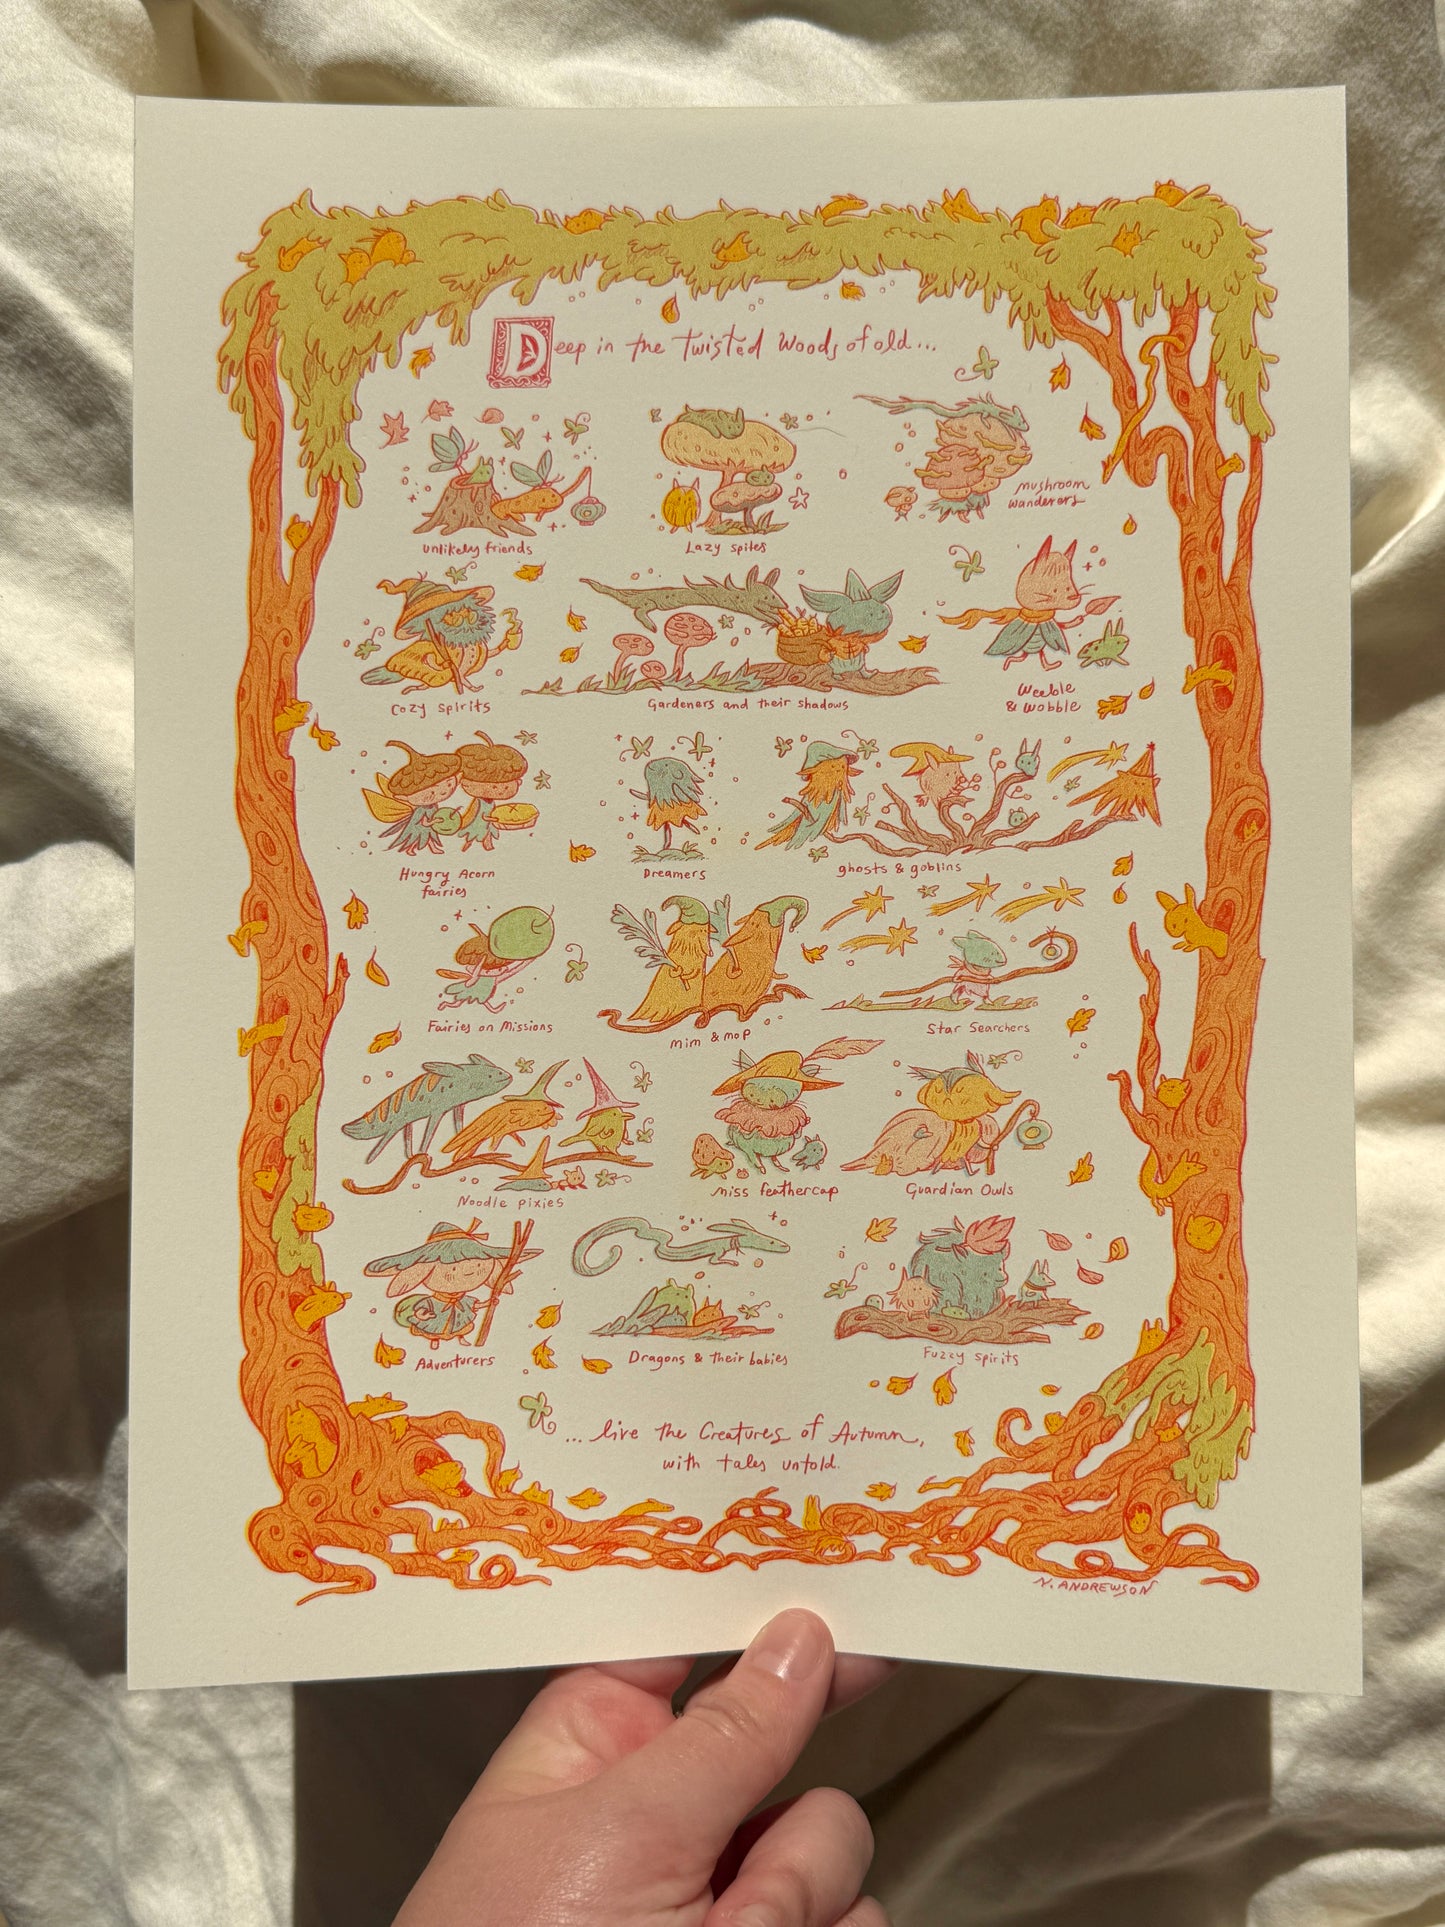 Deep in the Twisted Woods of old...
unlikely friends
Lazy spites
mushroom
wanderers
Cozy spirits
Gardeners and their shadows
Weeble
& Wobble
Hungry Acorn
fairies
Dreamers
ghosts & goblins
Fairies on Missions
mim & mop
Star Searchers
Noodle pixies
miss feathercap
Guardian Owls
Adventurers
Dragons & their babies
Fuzzy spirits
...live the Creatures of Autumn,
with tales untold.
N. ANDREWSON